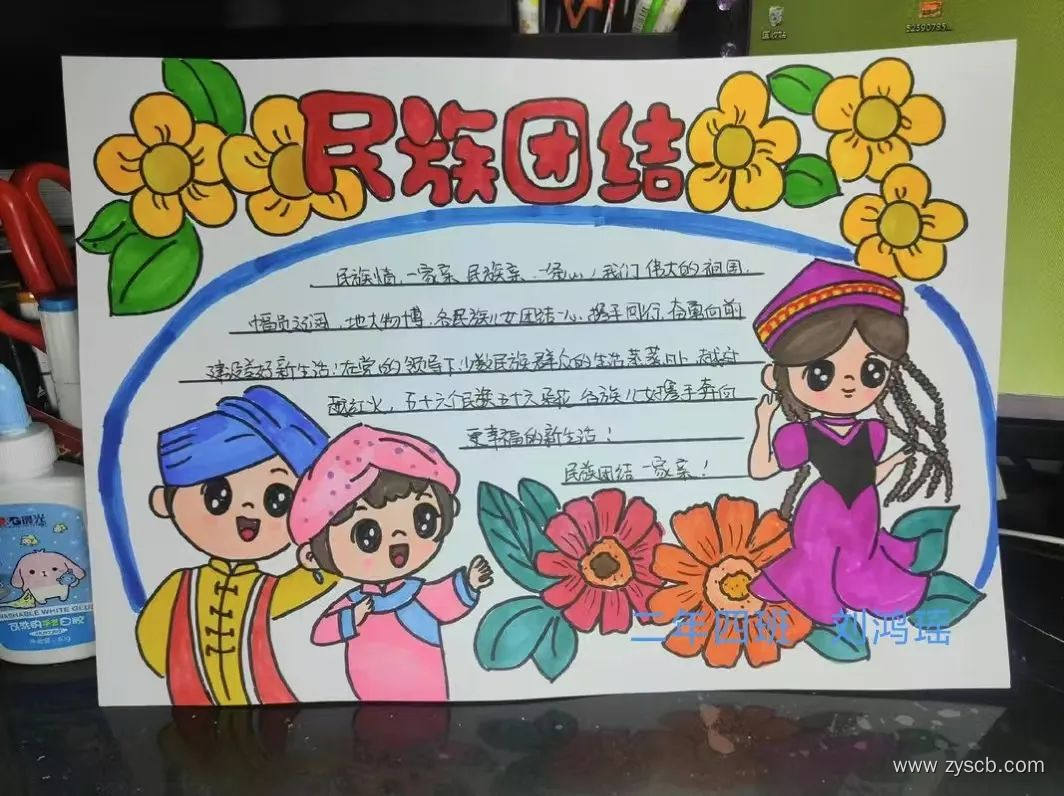 民族团结
民族情，一家亲，民族亲，一条心，我们伟大的祖国，
幅员辽阔，地大物博，各民族儿女团结一心，携手同行，奋勇向前
建设美好新生活！在党的领导下少数民族群众的生活蒸蒸日上，越过
越红火，五十六个民族五十六朵花，各族儿女携手奔向
更幸福的新生活！
民族团结一家亲！
二年四班 刘鸿瑶
WASHABLE WHITE GLUE
www.zyscb.com